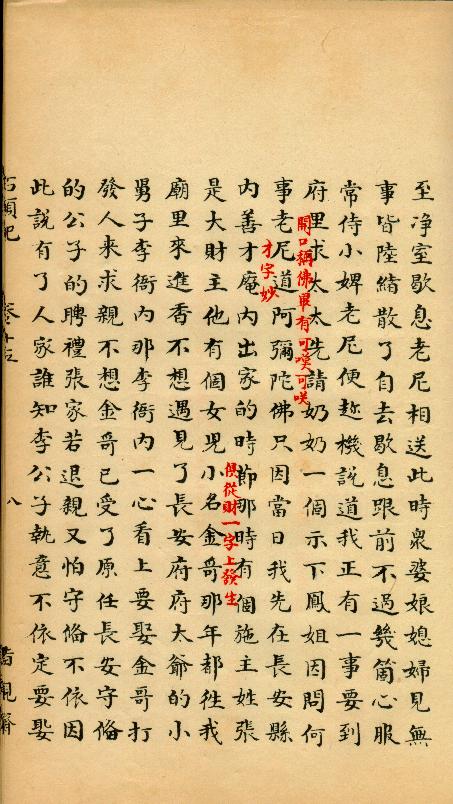 至净室歇息老尼相送此時衆婆娘媳婦見無
事皆陸緒散了自去歇息跟前不過幾箇心服
常侍小婢老尼便趂機說道我正有一事要到
府里求太太先請奶奶一個示下鳳姐因問何
開口稱佛畢有可嘆可咲
事老尼道阿彌陀佛只因當日我先在長安縣
才字妙
内善才庵内出家的時節那時有個施主姓張
俱從財一字上發生
是大財主他有個女児小名金哥那年都徃我
廟里來進香不想遇見了長安府府太爺的小
舅子李衙内那李衙内一心看上要娶金哥打
發人来求親不想金哥已受了原任長安守偹
的公子的聘禮張家若退親又怕守偹不依因
此說有了人家誰知李公子執意不依定要娶
石頭記 卷十五 八 脂硯齋